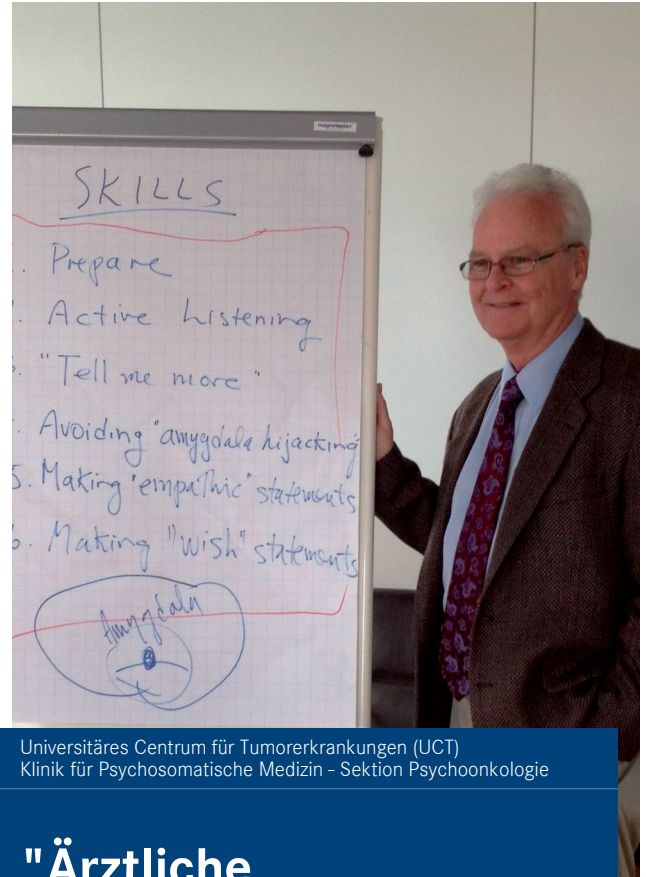 magnetoplan
SKILLS
. Prepare
. Active Listening
. "Tell me more"
. Avoiding "amygdala hijacking"
5. Making "empathic" statements
6. Making "wish" statements
Amygdala
Universitäres Centrum für Tumorerkrankungen (UCT)
Klinik für Psychosomatische Medizin - Sektion Psychoonkologie
"Ärztliche